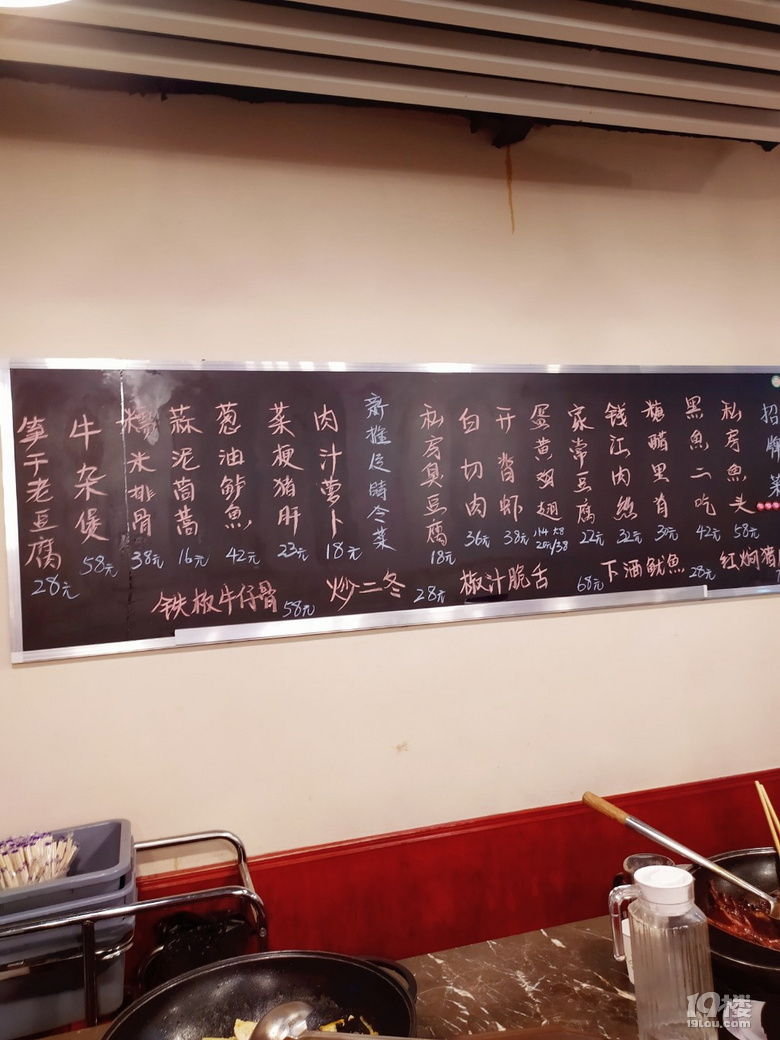 招牌菜
私房魚头 58元
黑魚二吃 42元
糖醋里脊 30元
钱江肉丝 32元
家常豆腐 22元
蛋黄鸡翅
开背虾 38元
白切肉 36元
私房臭豆腐 18元
新推应時冷菜
肉汁萝卜 18元
菜梗猪肝 23元
葱油鲈魚 42元
蒜泥茼蒿 16元
糯米排骨 38元
牛杂煲 58元
笋干老豆腐 28元
铁板牛仔骨 58元 炒二冬 28元 椒汁脆舌 68元 下酒鱿鱼 28元 红焖猪
19楼
19lou.com